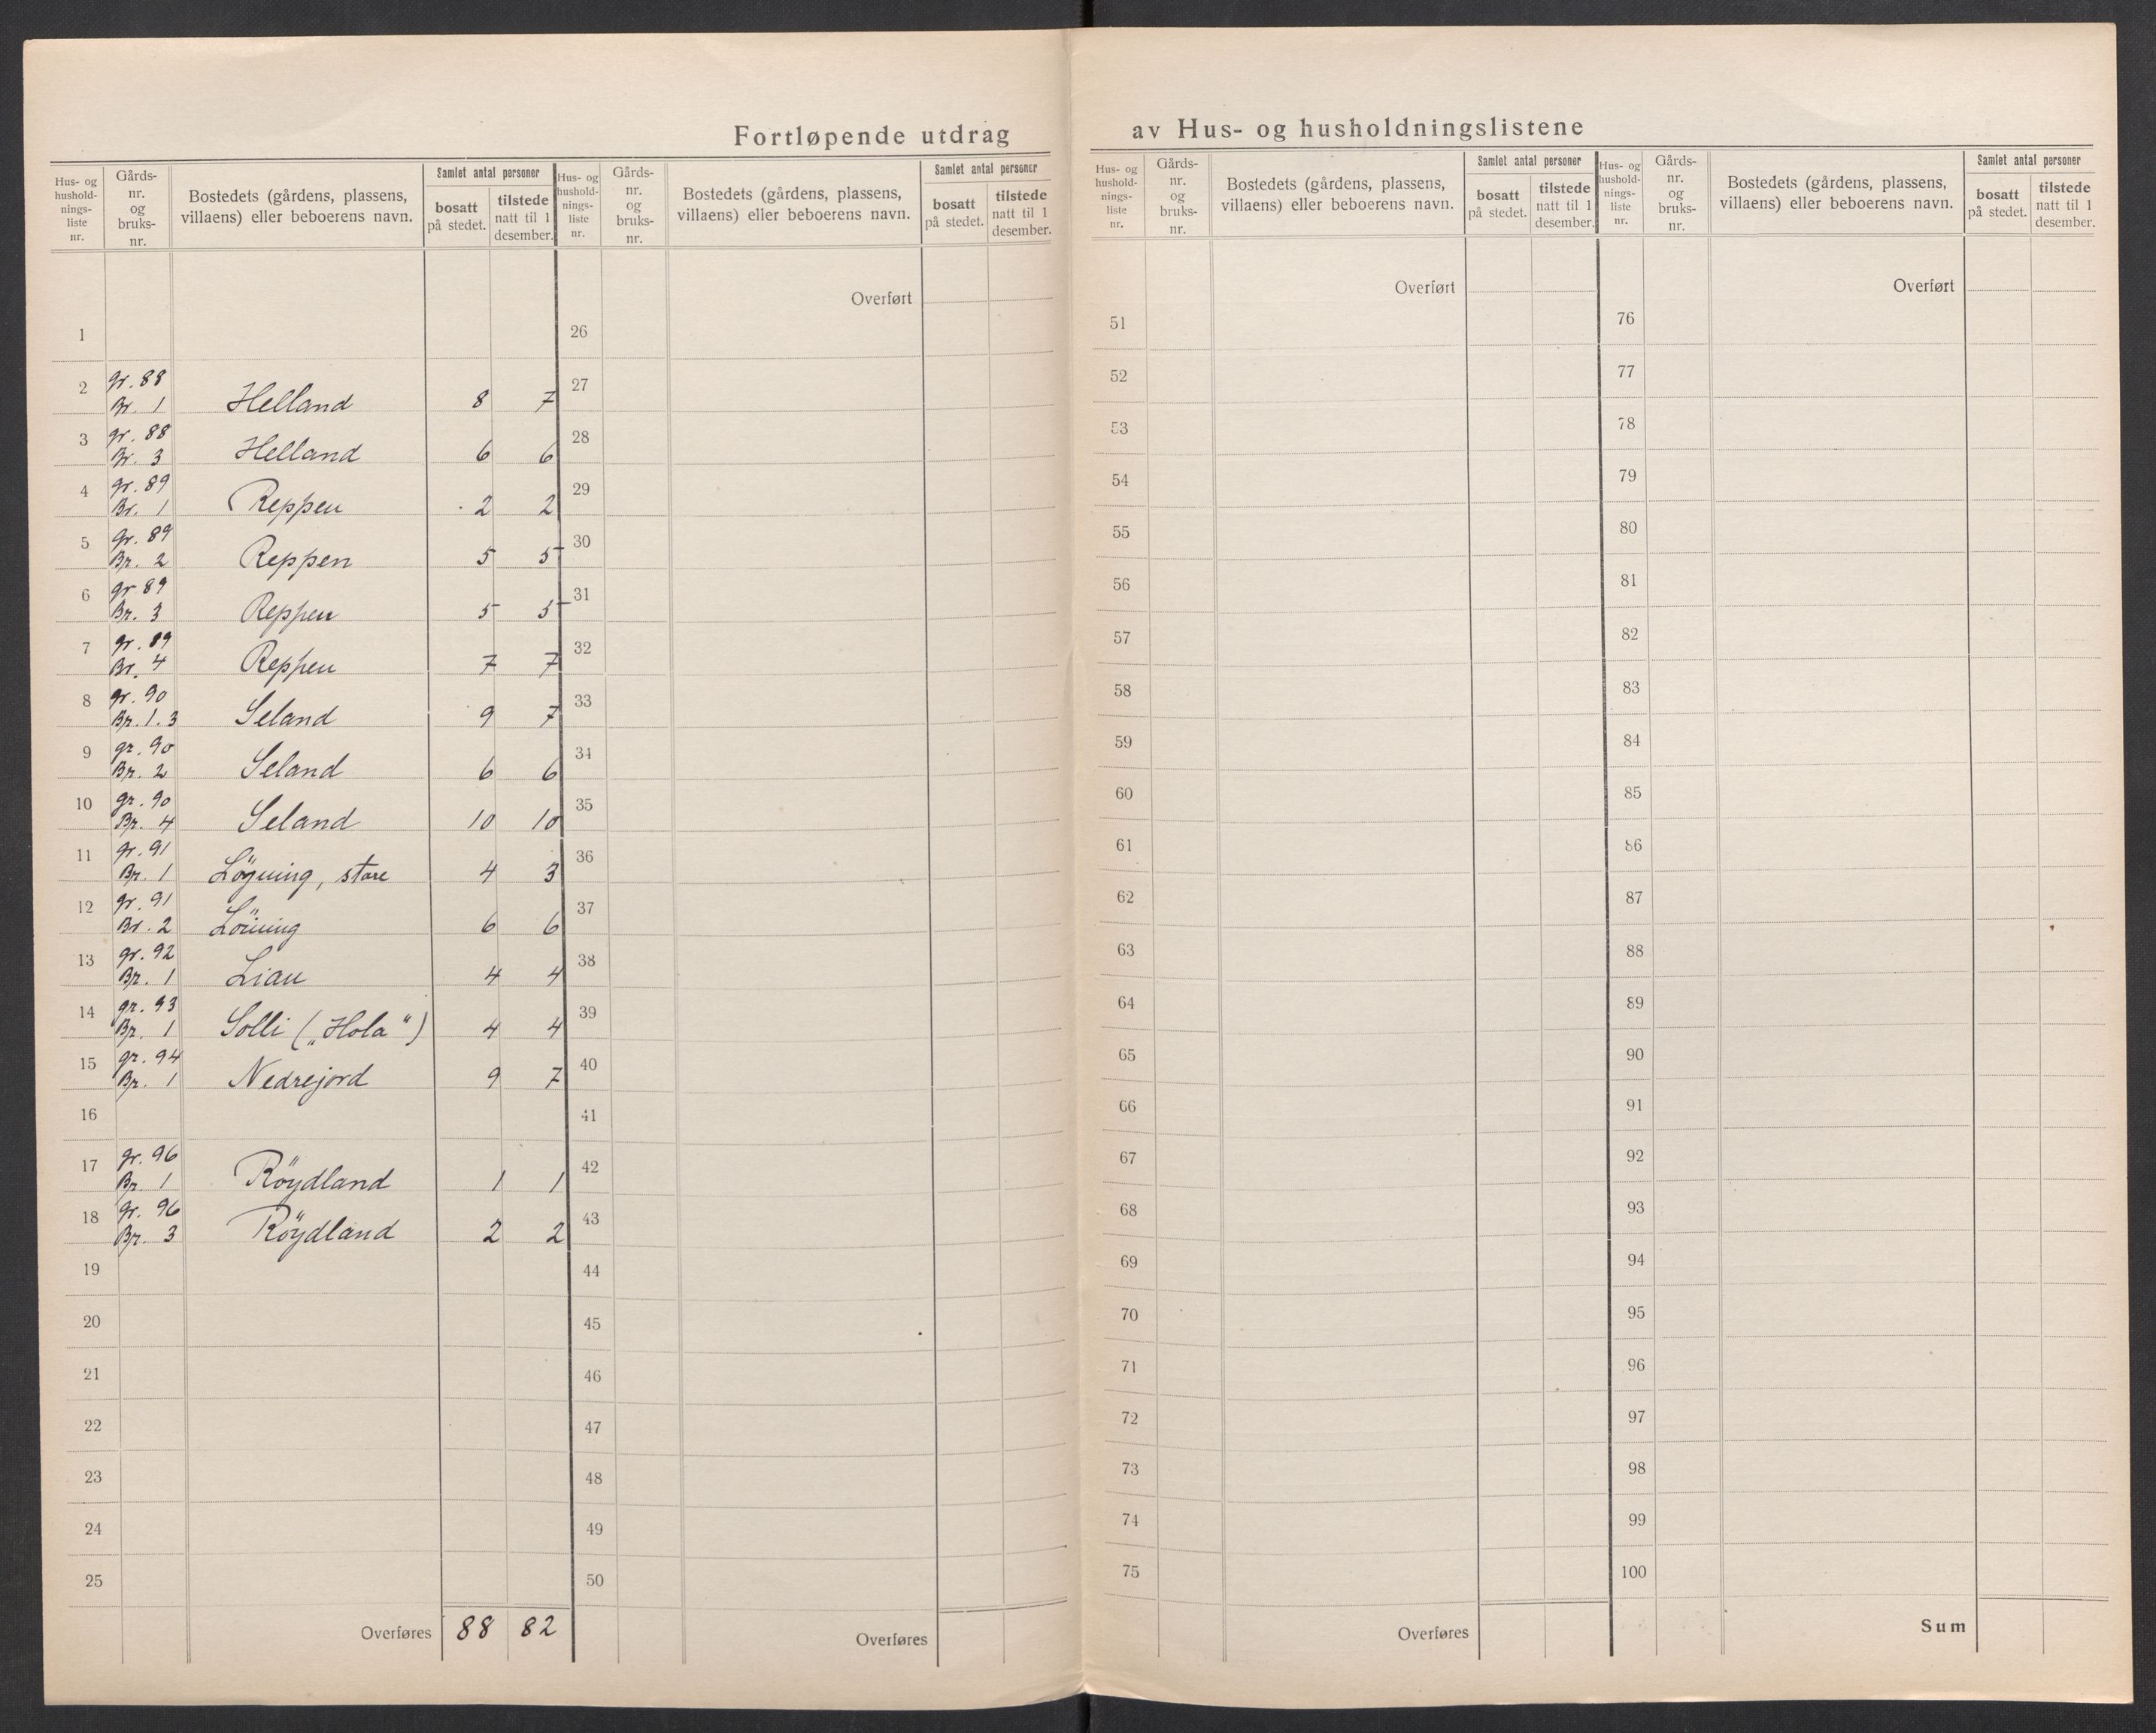 Fortløpende utdrag av Hus- og husholdningslistene
Hus- og husholdnings-liste nr. | Gårds-nr. og bruks-nr. | Bostedets (gårdens, plassens, villaens) eller beboerens navn. | Samlet antal personer bosatt på stedet. | tilstede natt til 1 desember.
1
2 | gr. 88 Br. 1 | Helland | 8 | 7
3 | gr. 88 Br. 3 | Helland | 6 | 6
4 | gr. 89 Br. 1 | Reppen | 2 | 2
5 | gr. 89 Br. 2 | Reppen | 5 | 5
6 | gr 89 Br. 3 | Reppen | 5 | 5
7 | gr. 89 Br. 4 | Reppen | 7 | 7
8 | gr. 90 Br. 1. 3 | Seland | 9 | 7
9 | gr. 90 Br. 2 | Seland | 6 | 6
10 | gr. 90 Br. 4 | Seland | 10 | 10
11 | gr. 91 Br. 1 | Löyning, store | 4 | 3
12 | gr. 91 Br. 2 | Löining | 6 | 6
13 | gr. 92 Br. 1 | Lian | 4 | 4
14 | gr. 93 Br. 1 | Solli („Hola") | 4 | 4
15 | gr. 94 Br. 1 | Nedrejord | 9 | 7
16
17 | gr. 96 Br. 1 | Röydland | 1 | 1
18 | gr. 96 Br. 3 | Röydland | 2 | 2
19
20
21
22
23
24
25
Overføres | 88 | 82
Hus- og husholdnings-liste nr. | Gårds-nr. og bruks-nr. | Bostedets (gårdens, plassens, villaens) eller beboerens navn. | Samlet antal personer bosatt på stedet. | tilstede natt til 1 desember.
Overført
26
27
28
29
30
31
32
33
34
35
36
37
38
39
40
41
42
43
44
45
46
47
48
49
50
Overføres
Hus- og husholdnings-liste nr. | Gårds-nr. og bruks-nr. | Bostedets (gårdens, plassens, villaens) eller beboerens navn. | Samlet antal personer bosatt på stedet. | tilstede natt til 1 desember.
Overført
51
52
53
54
55
56
57
58
59
60
61
62
63
64
65
66
67
68
69
70
71
72
73
74
75
Overføres
Hus- og husholdnings-liste nr. | Gårds-nr. og bruks-nr. | Bostedets (gårdens, plassens, villaens) eller beboerens navn. | Samlet antal personer bosatt på stedet. | tilstede natt til 1 desember.
Overført
76
77
78
79
80
81
82
83
84
85
86
87
88
89
90
91
92
93
94
95
96
97
98
99
100
Sum